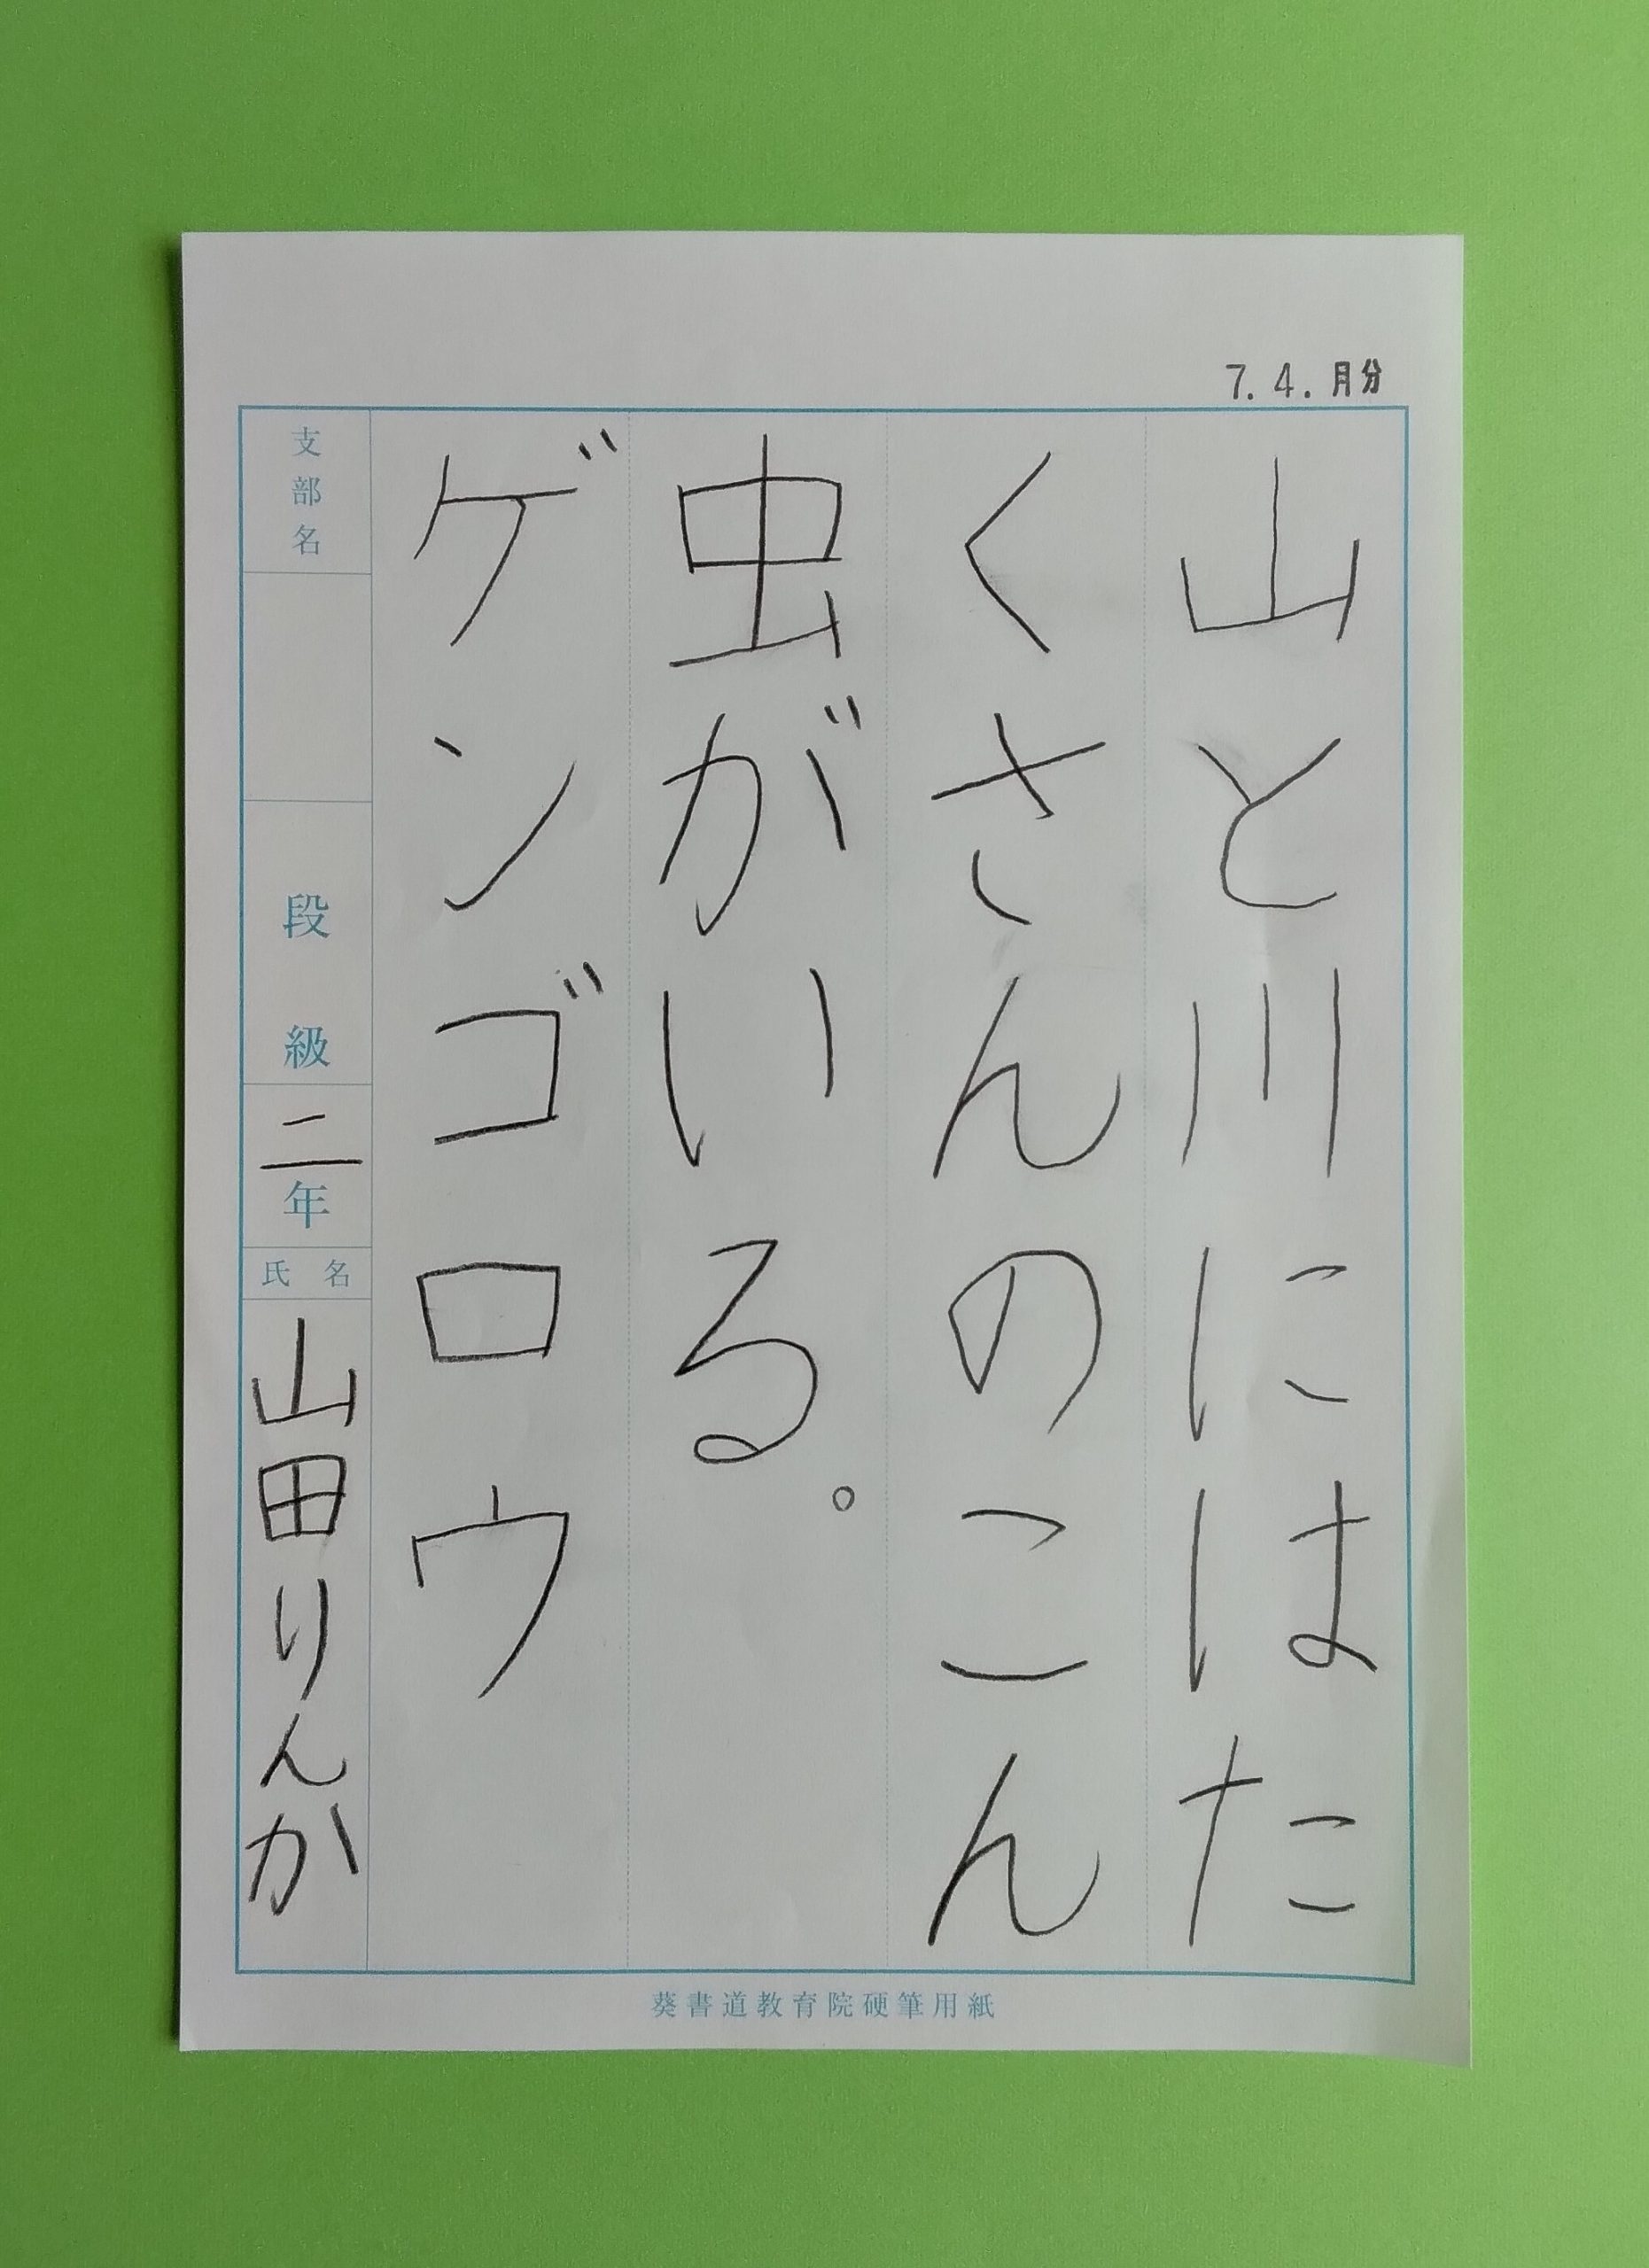 7.4.月分
山と川にはた
くさんのこん
虫がいる。
ゲンゴロウ
支部名
段級
二年
氏名
山田りんか
葵書道教育院硬筆用紙